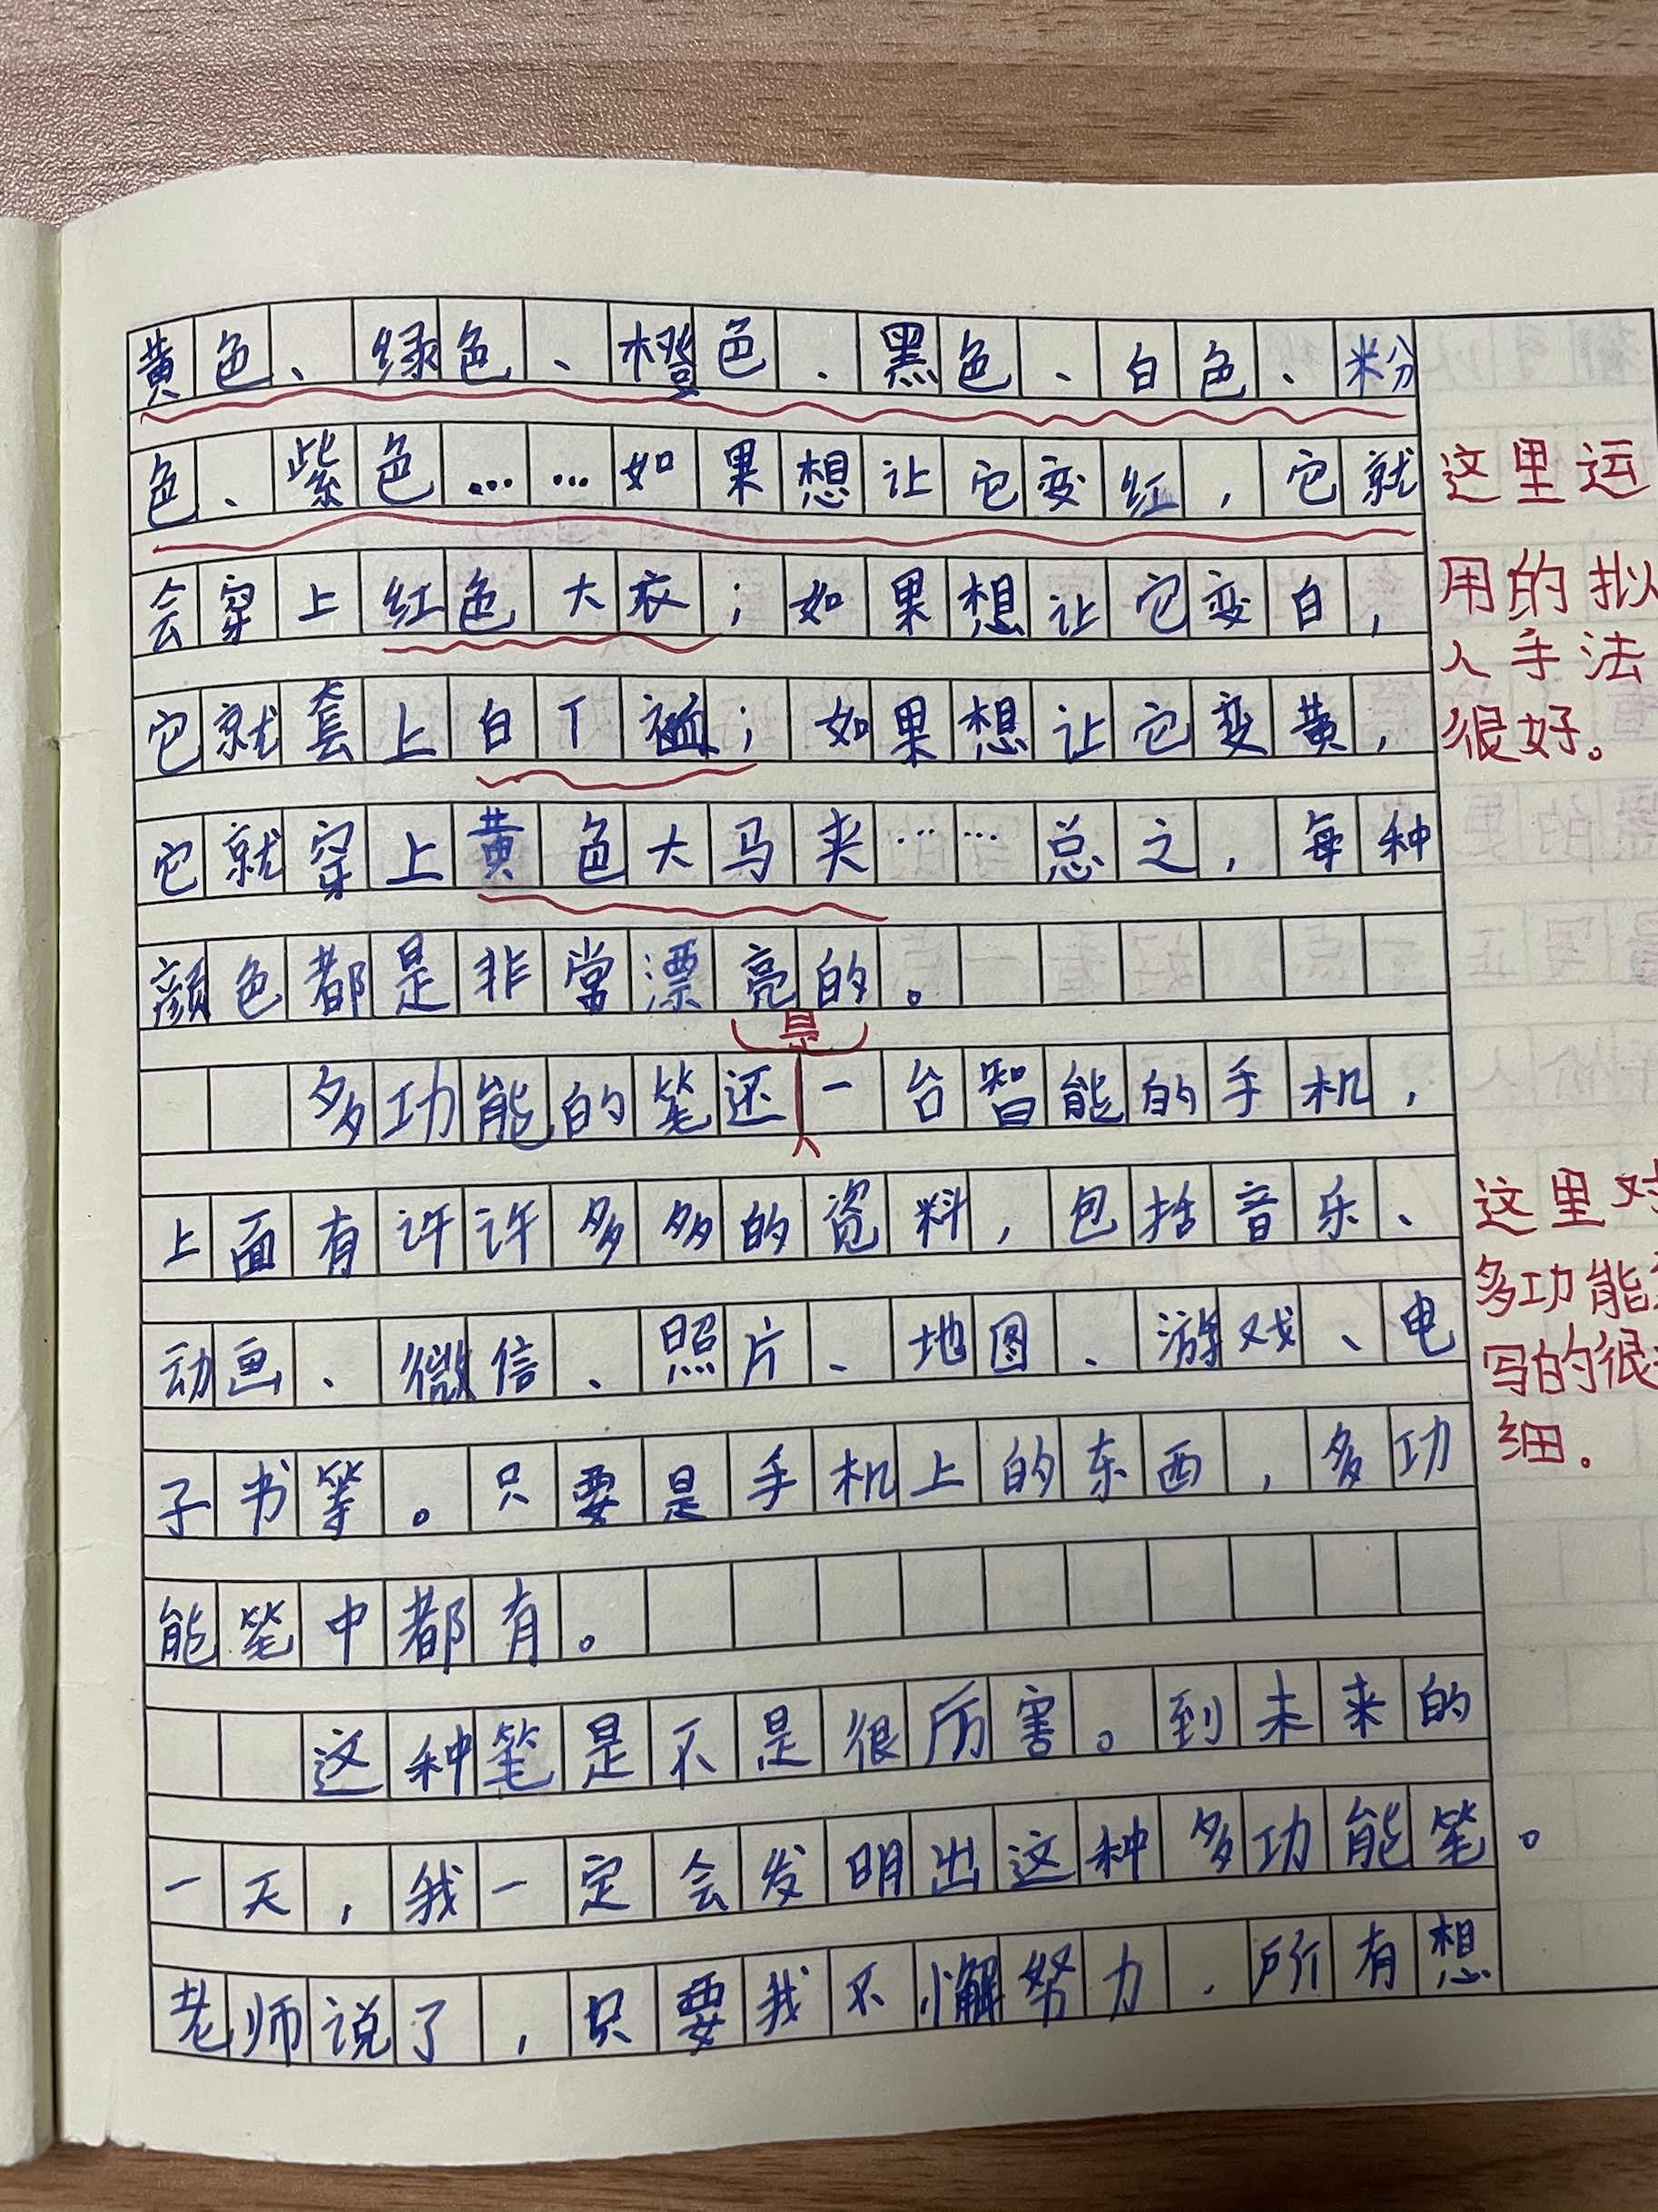 黄色、绿色、橙色、黑色、白色、粉
色、紫色……如果想让它变红，它就
这里运
会穿上红色大衣；如果想让它变白，
用的拟
人手法
它就套上白T裇；如果想让它变黄，
很好。
它就穿上黄色大马夹……总之，每种
颜色都是非常漂亮的。
是
多功能的笔还一台智能的手机，
上面有许许多多的资料，包括音乐、
这里对
多功能
动画、微信、照片、地图、游戏、电
写的很
子书等。只要是手机上的东西，多功
细。
能笔中都有。
这种笔是不是很厉害。到未来的
一天，我一定会发明出这种多功能笔。
老师说了，只要我不懈努力，所有想